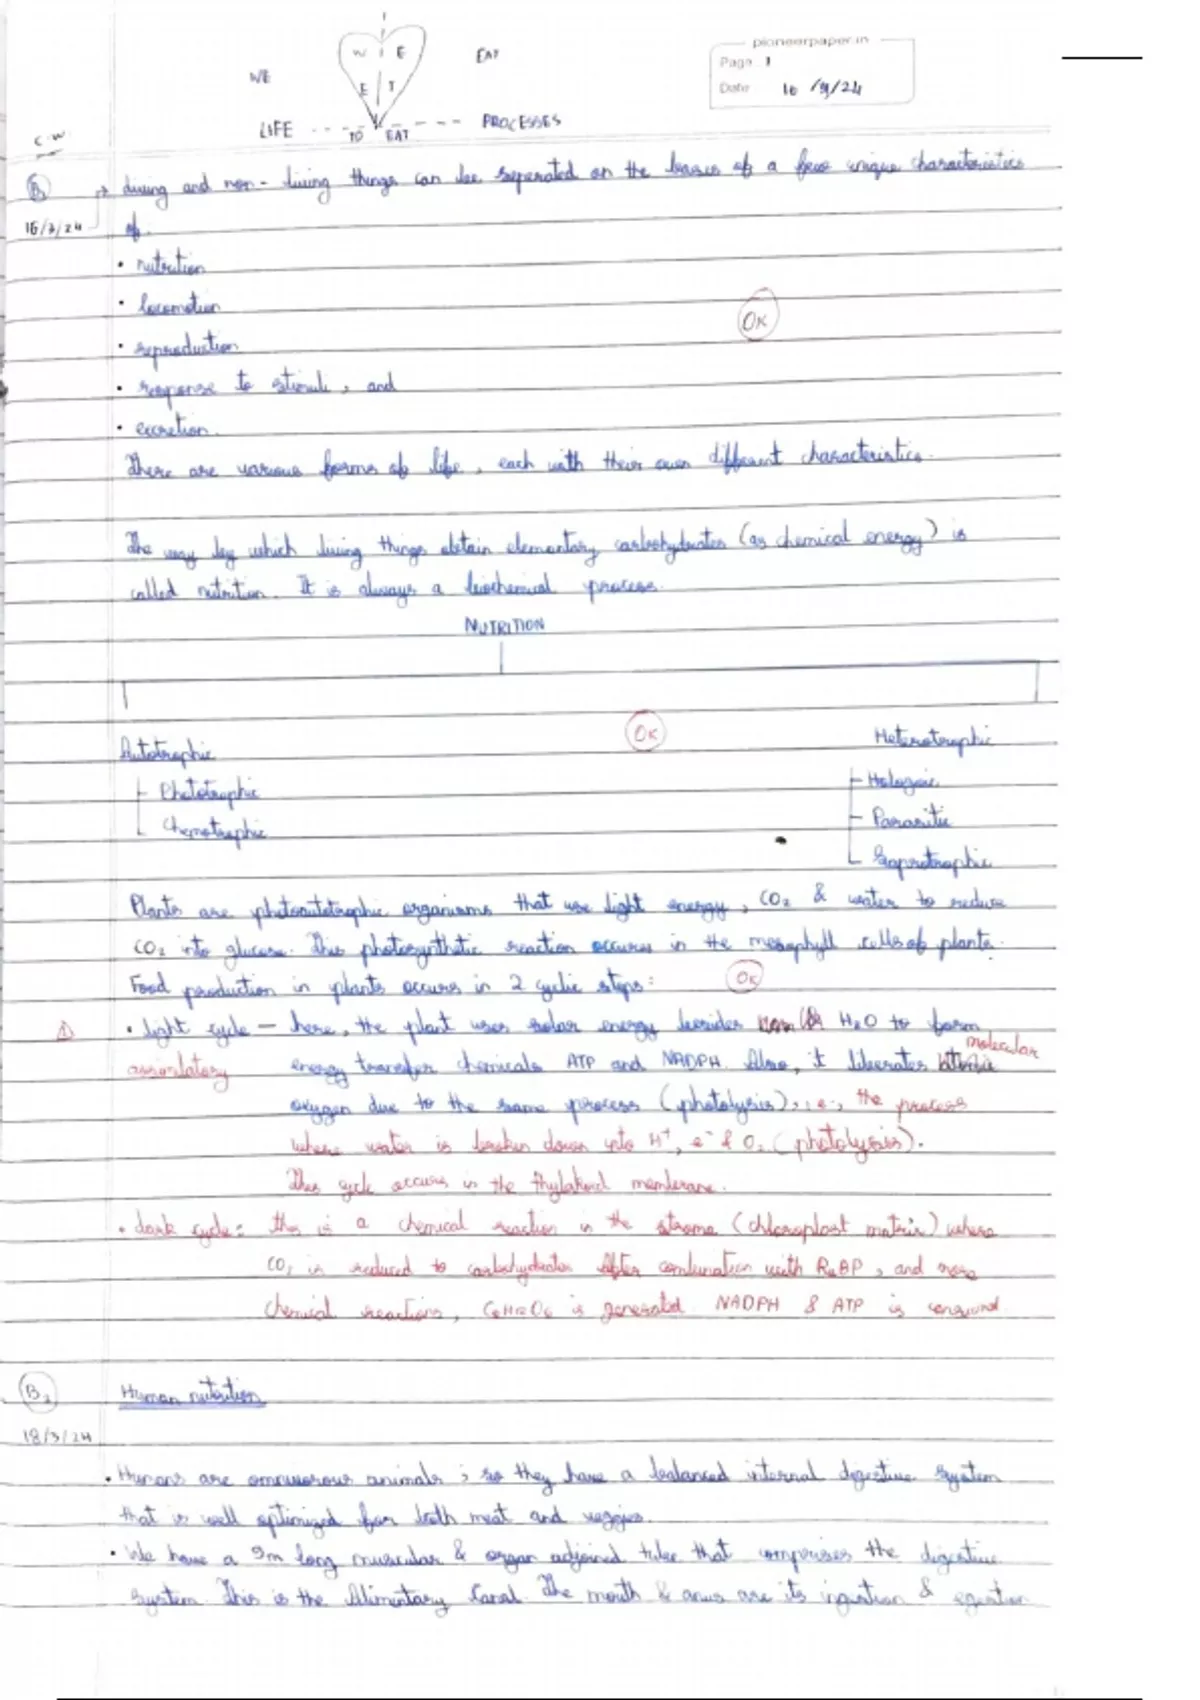 W E
E T
WE
EAT
pioneerpaper.in
Page 1
Date 16 /3/24
LIFE --- TO EAT --- PROCESSES
C.W
16/3/24
living and non-living things can be seperated on the basis of a few unique characteristics
of.
• nutrition
• locomotion
OK
• reproduction
• response to stimuli, and
• excretion.
There are various forms of life, each with their own different characteristics.
The way by which living things obtain elementary carbohydrates (as chemical energy) is
called nutrition. It is always a biochemical process.
NUTRITION
OK
Autotrophic
Heterotrophic
Phototrophic
Holozoic
Chemotrophic
Parasitic
Saprotrophic
Plants are photoautotrophic organisms that use light energy, CO₂ & water to reduce
CO₂ into glucose. This photosynthetic reaction occurs in the mesophyll cells of plants.
Food production in plants occurs in 2 cyclic steps:
OK
• light cycle - here, the plant uses solar energy besides H₂O to form
molecular
energy transfer chemicals ATP and NADPH. Also, it liberates
oxygen due to the same process (photolysis), i.e., the process
where water is broken down into H⁺, e⁻ & O₂ (photolysis).
This cycle occurs in the thylakoid membrane.
• dark cycle: this is a chemical reaction in the stroma (chloroplast matrix) where
CO₂ is reduced to carbohydrates after combination with RuBP, and more
chemical reactions, C₆H₁₂O₆ is generated. NADPH & ATP is consumed.
B₂
Human nutrition
18/3/24
• Humans are omnivorous animals; so they have a balanced internal digestive system
that is well optimized for both meat and veggies.
• We have a 9m long muscular & organ adjoined tube that comprises the digestive
system. This is the Alimentary Canal. The mouth & anus are its ingestion & egestion